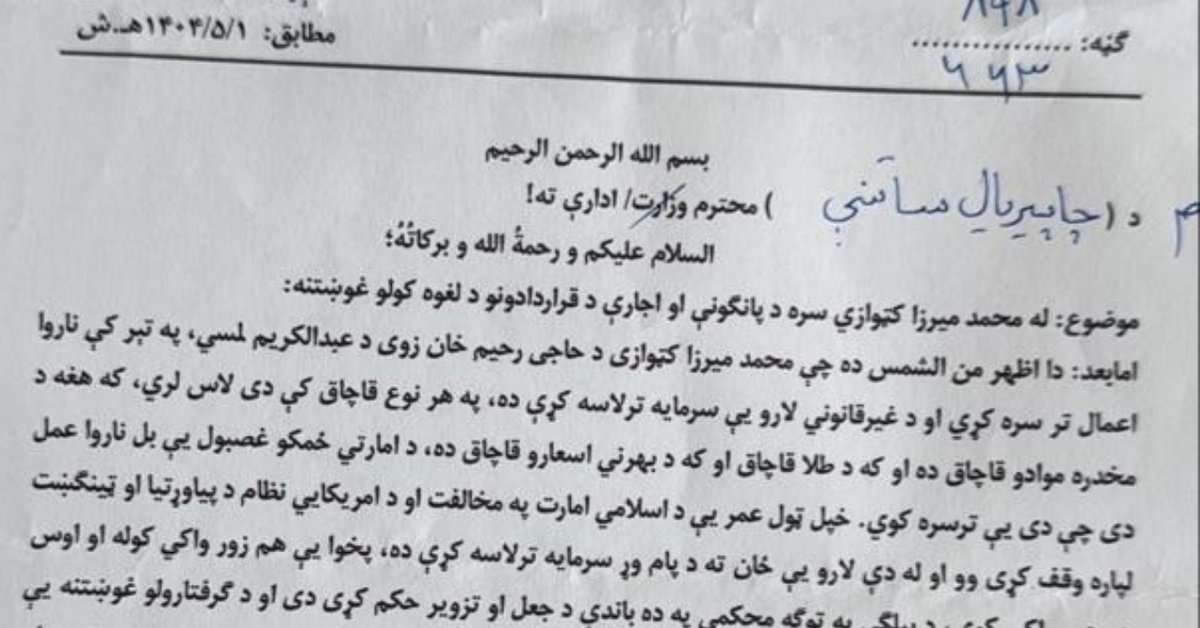 ۸۹۸
ګڼه: ................ مطابق: ۱۴۰۴/۵/۱هـ.ش
۶۶۳
بسم الله الرحمن الرحیم
د (چاپیریال ساتنې) محترم وزارت/ ادارې ته!
السلام علیکم و رحمةُ الله و برکاتُهُ؛
موضوع: له محمد میرزا کټوازي سره د پانګونې او اجارې د قراردادونو د لغوه کولو غوښتنه:
امابعد: دا اظهر من الشمس ده چې محمد میرزا کټوازی د حاجی رحیم خان زوی د عبدالکریم لمسی، په تېر کې ناروا
اعمال تر سره کړي او د غیرقانوني لارو یې سرمایه ترلاسه کړې ده، په هر نوع قاچاق کې دی لاس لري، که هغه د
مخدره موادو قاچاق ده او که د طلا قاچاق او که د بهرني اسعارو قاچاق ده، د امارتي ځمکو غصبول یې بل ناروا عمل
دی چې دی یې ترسره کوي. خپل ټول عمر یې د اسلامي امارت په مخالفت او د امریکایي نظام د پیاوړتیا او ټینګښت
لپاره وقف کړی وو او له دې لارو یې ځان ته د پام وړ سرمایه ترلاسه کړې ده، پخوا یې هم زور واکي کوله او اوس
په توګه محکمې په ده باندې د جعل او تزویر حکم کړی دی او د ګرفتارولو غوښتنه یې